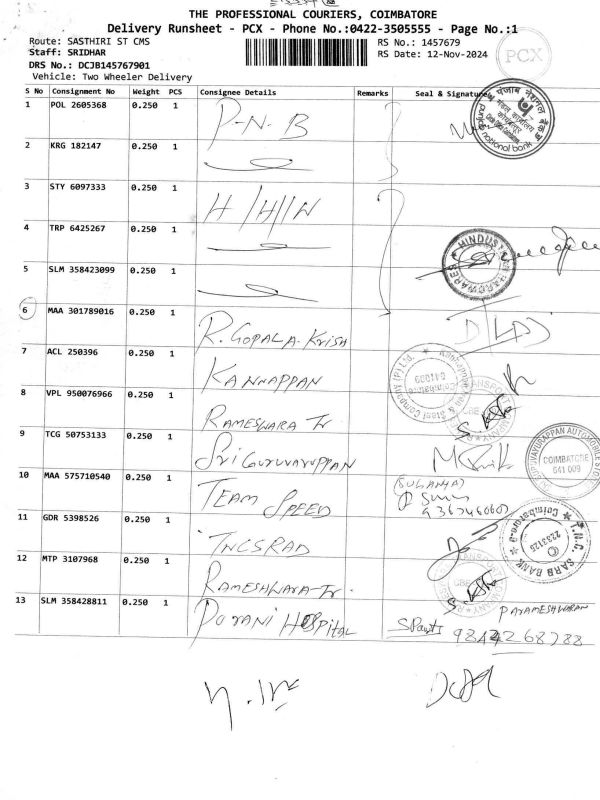 THE PROFESSIONAL COURIERS, COIMBATORE
Delivery Runsheet - PCX - Phone No.:0422-3505555 - Page No.:1
Route: SASTHIRI ST CMS
RS No.: 1457679
Staff: SRIDHAR
RS Date: 12-Nov-2024
PCX
DRS No.: DCJB145767901
Vehicle: Two Wheeler Delivery
S No Consignment No Weight PCS Consignee Details Remarks Seal & Signature
1 POL 2605368 0.250 1 P-N-B
2 KRG 182147 0.250 1
3 STY 6097333 0.250 1 H/H/W
4 TRP 6425267 0.250 1
5 SLM 358423099 0.250 1
6 MAA 301789016 0.250 1 R.GOPALA-Krish
7 ACL 250396 0.250 1 KANNAPPAN
8 VPL 950076966 0.250 1 RAMESWARA Tr
9 TCG 50753133 0.250 1 Sri Guruvaruppan
10 MAA 575710540 0.250 1 TEAM SPEED
(SUGANYA)
11 GDR 5398526 0.250 1 TNCSRAD
12 MTP 3107968 0.250 1 RAMESHWARA-Tr.
13 SLM 358428811 0.250 1 Dorani Hospital
PARAMESHWARAN
national bank
COIMBATORE
641 009
T.N.C. SARB BANK
2233125